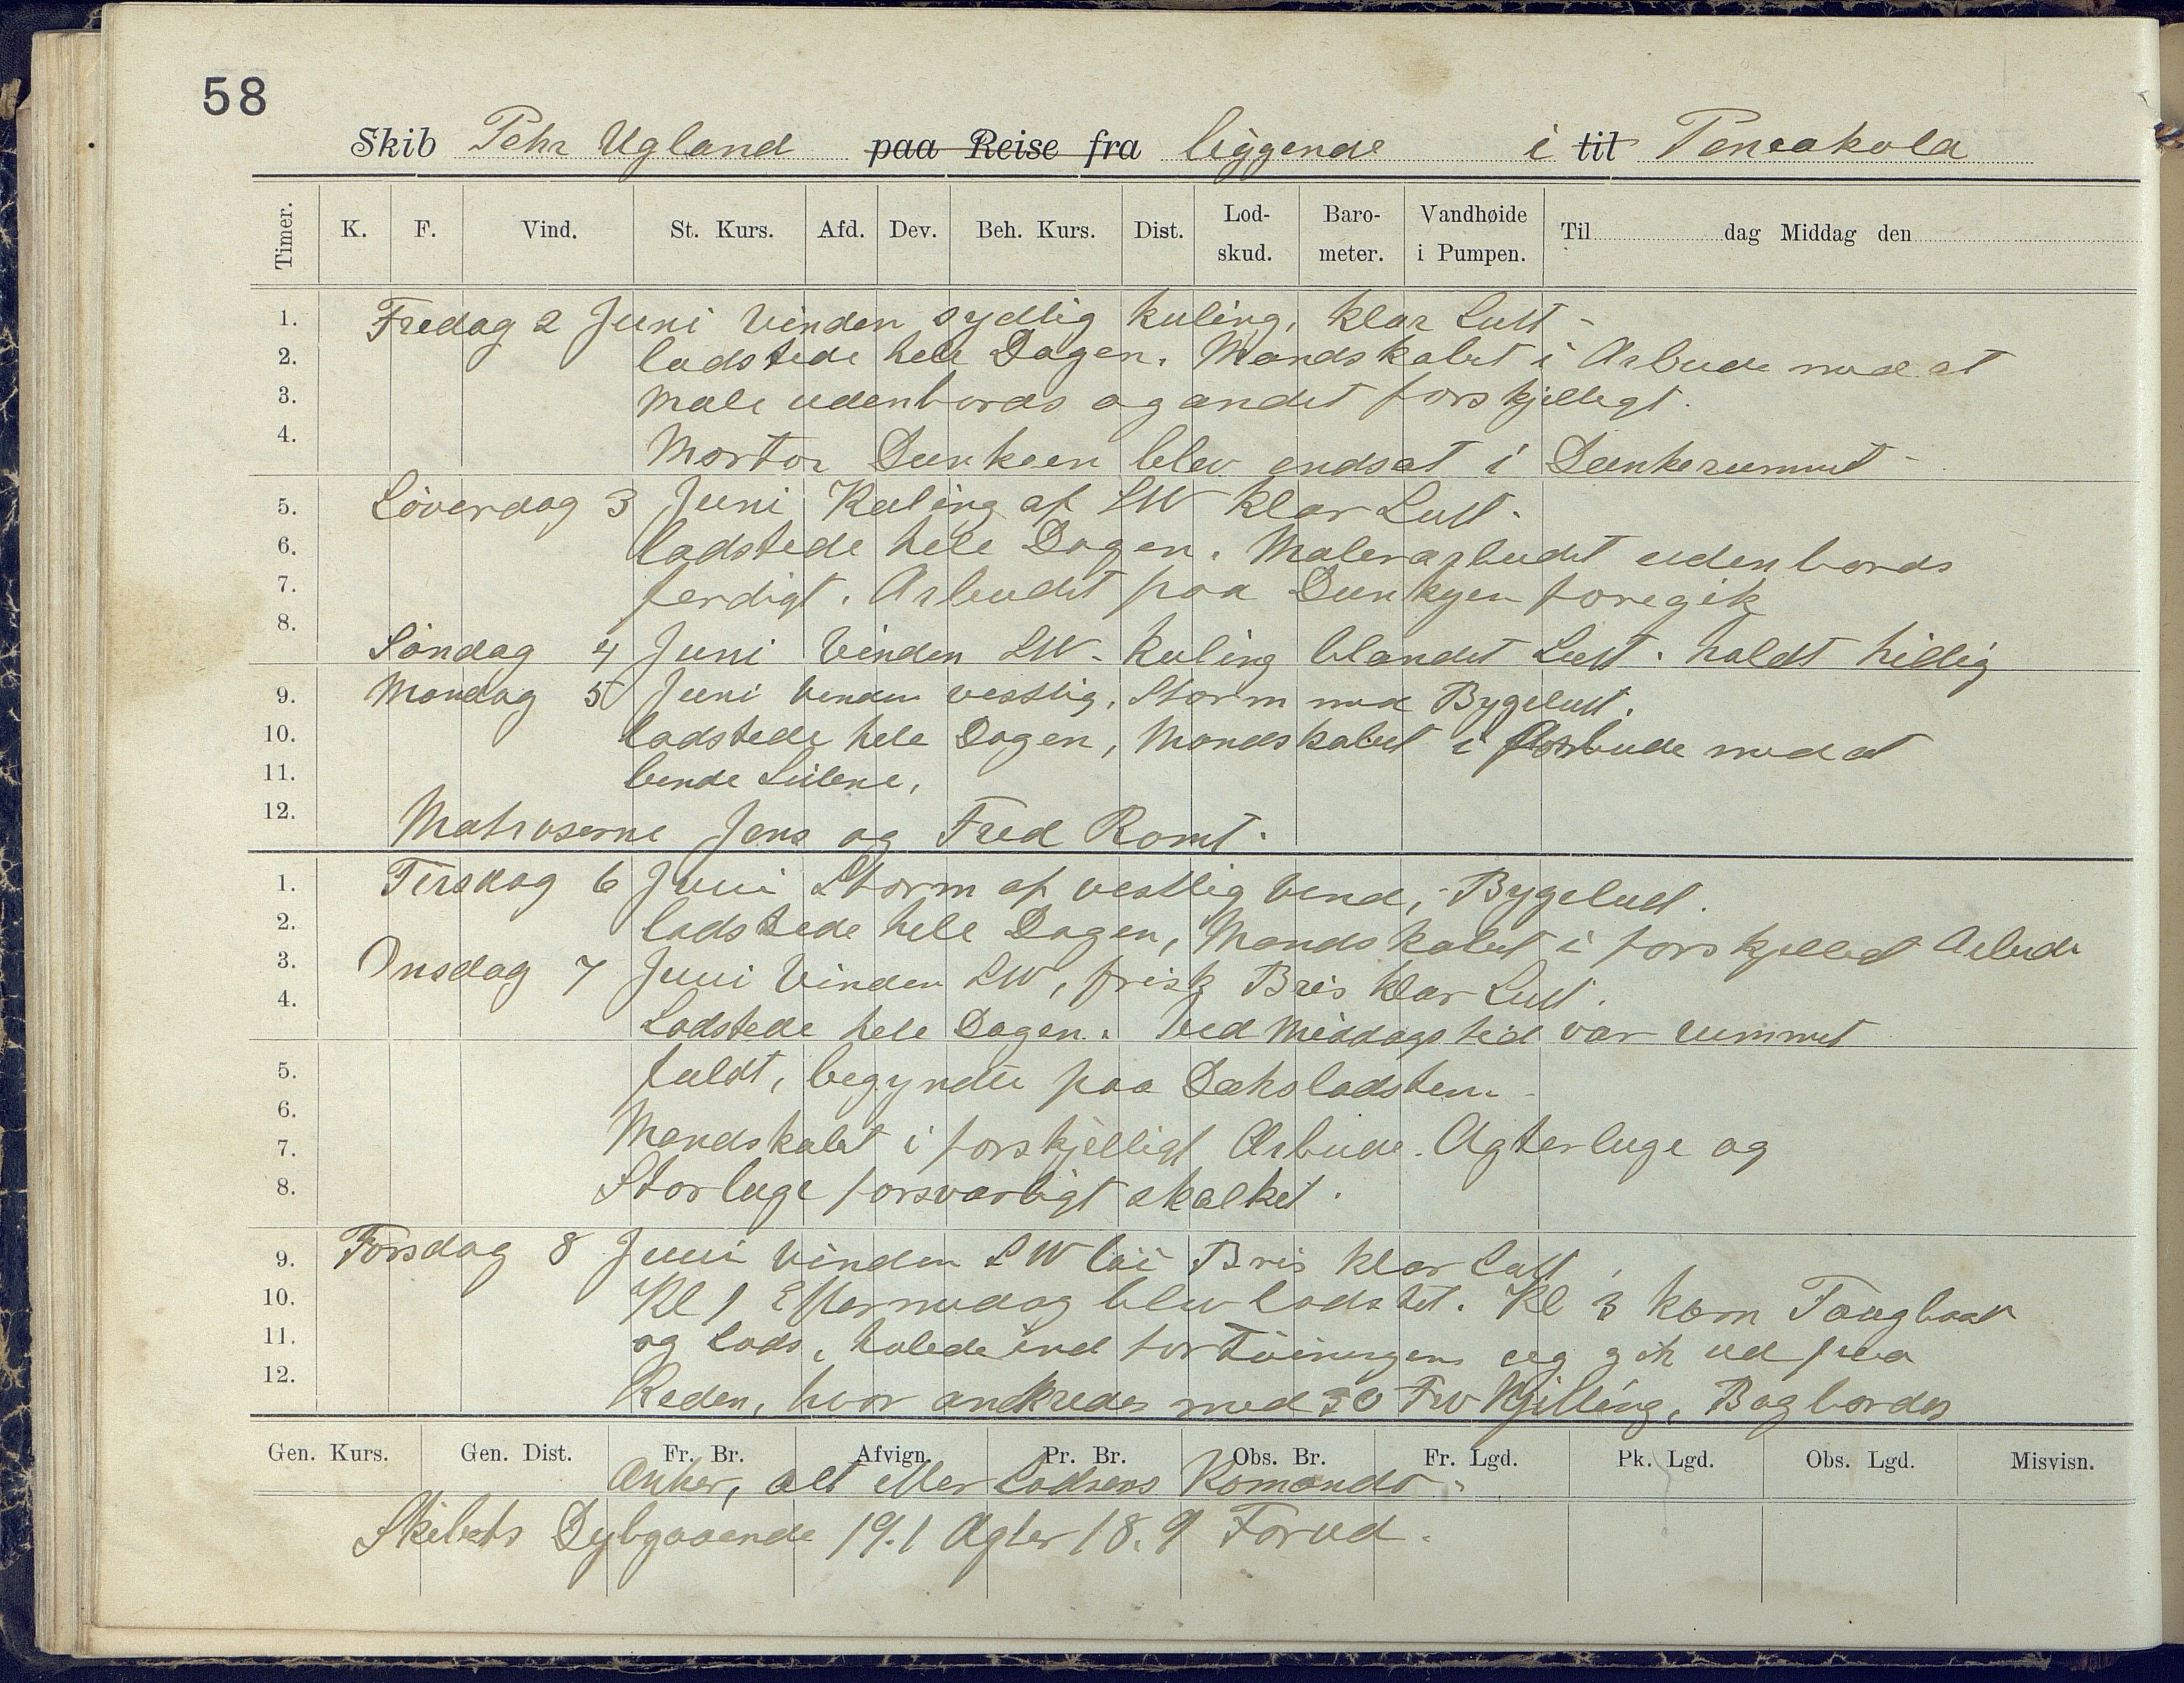 58
Skib Pehr Ugland paa Reise fra liggende i til Pensakola
Timer. K. F. Vind. St. Kurs. Afd. Dev. Beh. Kurs. Dist. Lod-skud. Baro-meter. Vandhøide i Pumpen. Til dag Middag den
1. Fredag 2 Juni Vinden sydlig kuling, klar Luft -
2. ladstede hele Dagen. Mandskabet i Arbeide med at
3. Male udenbords og andet forskjelligt.
4. Dunkeen blev endsat i Dunkerummet -
5. Löverdag 3 Juni Kuling af SW klar Luft.
6. ladstede hele Dagen. Malerarbeidet udenbords
7. ferdigt. Arbeidet paa Dunkyen foregik
8. Söndag 4 Juni Vinden SW. Kuling blandet Luft. holdt hellig
9. Mandag 5 Juni Vinden vestlig, Storm med Bygeluft.
10. ladstede hele Dagen, Mandskabet i Arbeide med at
11. bende Seilene.
12. Matroserne Jens og Fred Römt.
1. Tirsdag 6 Juni Storm af vestlig Vind, Bygeluft.
2. ladstede hele Dagen, Mandskabet i forskjelled Arbeide
3. Onsdag 7 Juni Vinden SW, frisk Bris klar Luft.
4. Ladstede hele Dagen. Ved Middagstid var rummet
5. fuldt, begyndte paa Dæksladsten.
6. Mandskabet i forskjelligt Arbeide. Agterluge og
7. Storluge forsvarligt skalket.
8.
9. Torsdag 8 Juni Vinden SW löi Bris klar Luft,
10. Kl 1 Eftermidag blev ladstet. Kl 3 kom Taugbaat
11. og Lods, halede ind fortöiningen og gik ud paa
12. Reden, hvor ankredes med 30 Fv Kjetting, Bagbordes
Gen. Kurs. Gen. Dist. Fr. Br. Afvign. Pr. Br. Obs. Br. Fr. Lgd. Pk. Lgd. Obs. Lgd. Misvisn.
Anker, alt efter Lodsens Komando.
Skibets Dybgaaende 19.1 Agter 18.9 Forud.